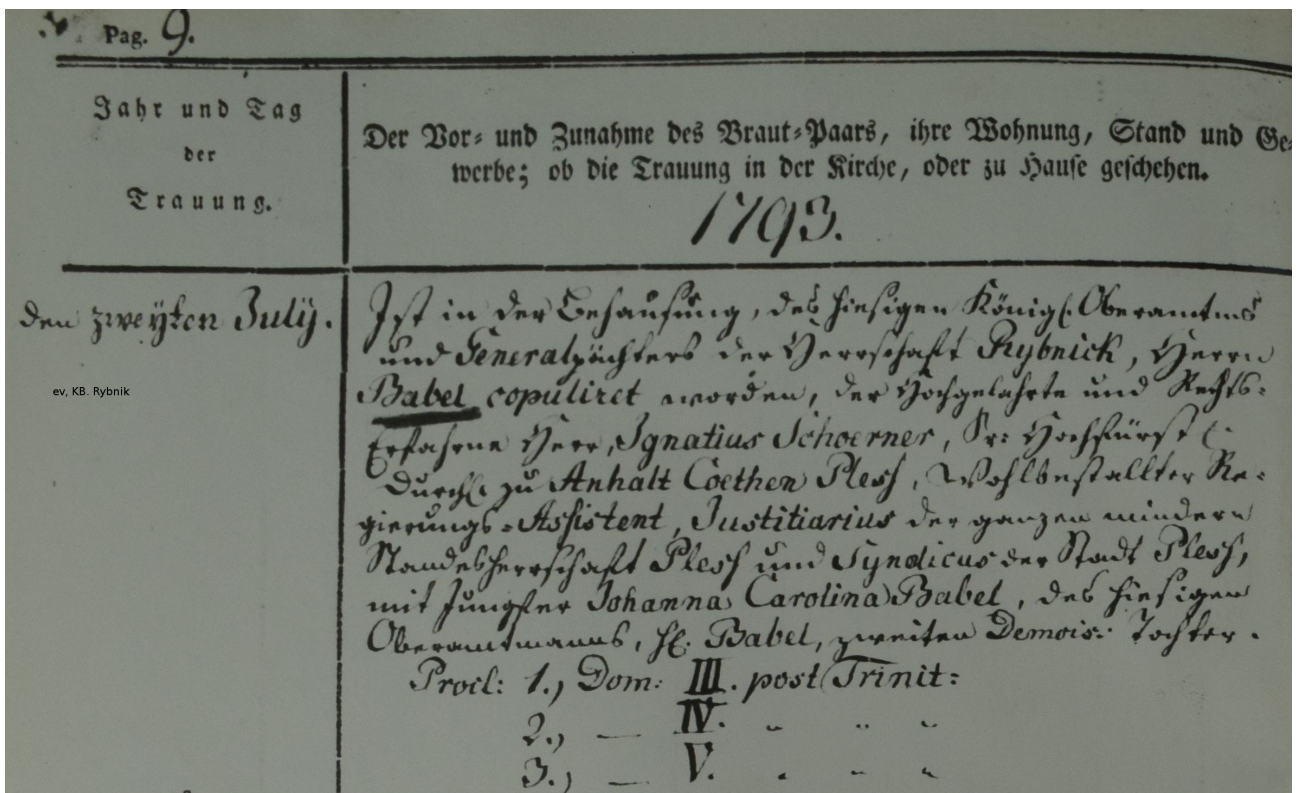 Pag. 9.
Jahr und Tag
der
Trauung.
Der Vor- und Zunahme des Braut-Paars, ihre Wohnung, Stand und Ge-
werbe; ob die Trauung in der Kirche, oder zu Hause geschehen.
1793.
den zweyten July.
ev, KB. Rybnik
Ist in der Behausung, des hiesigen Königl. Oberamtms
und Generalpächters der Herrschaft Rybnick, Herrn
Babel copuliret worden, der Hochgelahrte und Rechts-
Erfahrne Herr, Ignatius Schoerner, Sr: Hochfürstl.
Durchl. zu Anhalt Coethen Pless, Wohlbestallter Re-
gierungs-Assistent, Justitiarius der ganzen mindern
Standesherrschaft Pless und Syndicus der Stadt Pless,
mit Jungfer Johanna Carolina Babel, des hiesigen
Oberamtmanns, H. Babel, zweiten Demois: Tochter.
Procl: 1.) Dom: III. post Trinit:
2.) — IV. " " "
3.) — V. " " "